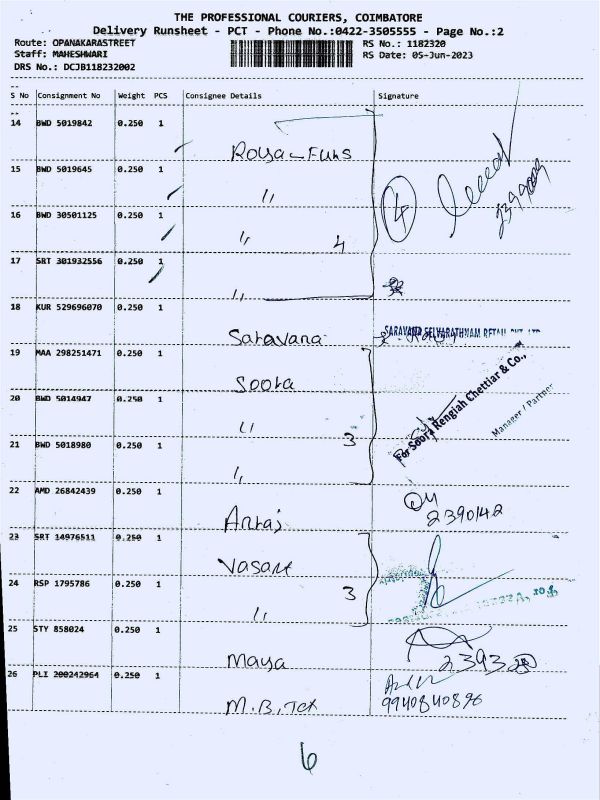 THE PROFESSIONAL COURIERS, COIMBATORE
Delivery Runsheet - PCT - Phone No.:0422-3505555 - Page No.:2
Route: OPANAKARASTREET RS No.: 1182320
Staff: MAHESHWARI RS Date: 05-Jun-2023
DRS No.: DCJB118232002
S No Consignment No Weight PCS Consignee Details Signature
14 BWD 5019842 0.250 1
15 BWD 5019645 0.250 1
〃
4
16 BWD 30501125 0.250 1
〃 4
17 SRT 301932556 0.250 1
〃
18 KUR 529696070 0.250 1
Saravana
SARAVANA SELVARATHNAM RETAIL PVT. LTD
19 MAA 298251471 0.250 1
Soora
20 BWD 5014947 0.250 1
〃 3
For Soora Rengiah Chettiar & Co.,
Manager / Partner
21 BWD 5018980 0.250 1
〃
22 AMD 26842439 0.250 1
2390142
23 SRT 14976511 0.250 1
Vasant
24 RSP 1795786 0.250 1
〃 3
25 STY 858024 0.250 1
Maya
26 PLI 200242964 0.250 1
M.B. Tex
9940840896
6